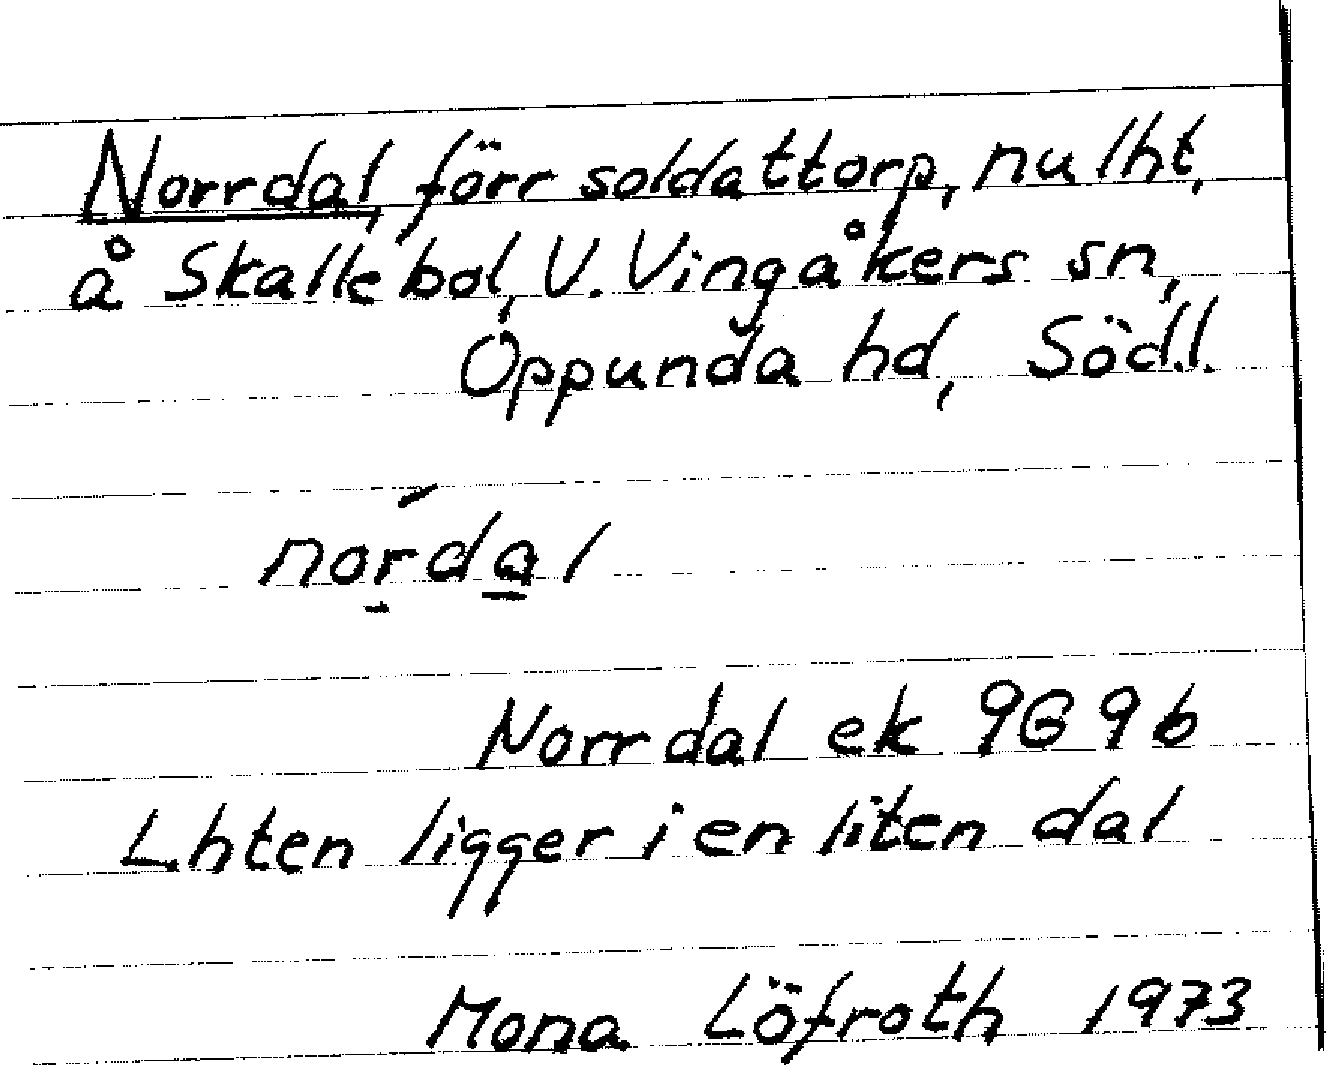 Norrdal, förr soldattorp, nu lht,
å Skallebol, V. Vingåkers sn,
Oppunda hd, Södl.
nordal
Norrdal ek 9G 9b
Lhten ligger i en liten dal
Mona Löfroth 1973